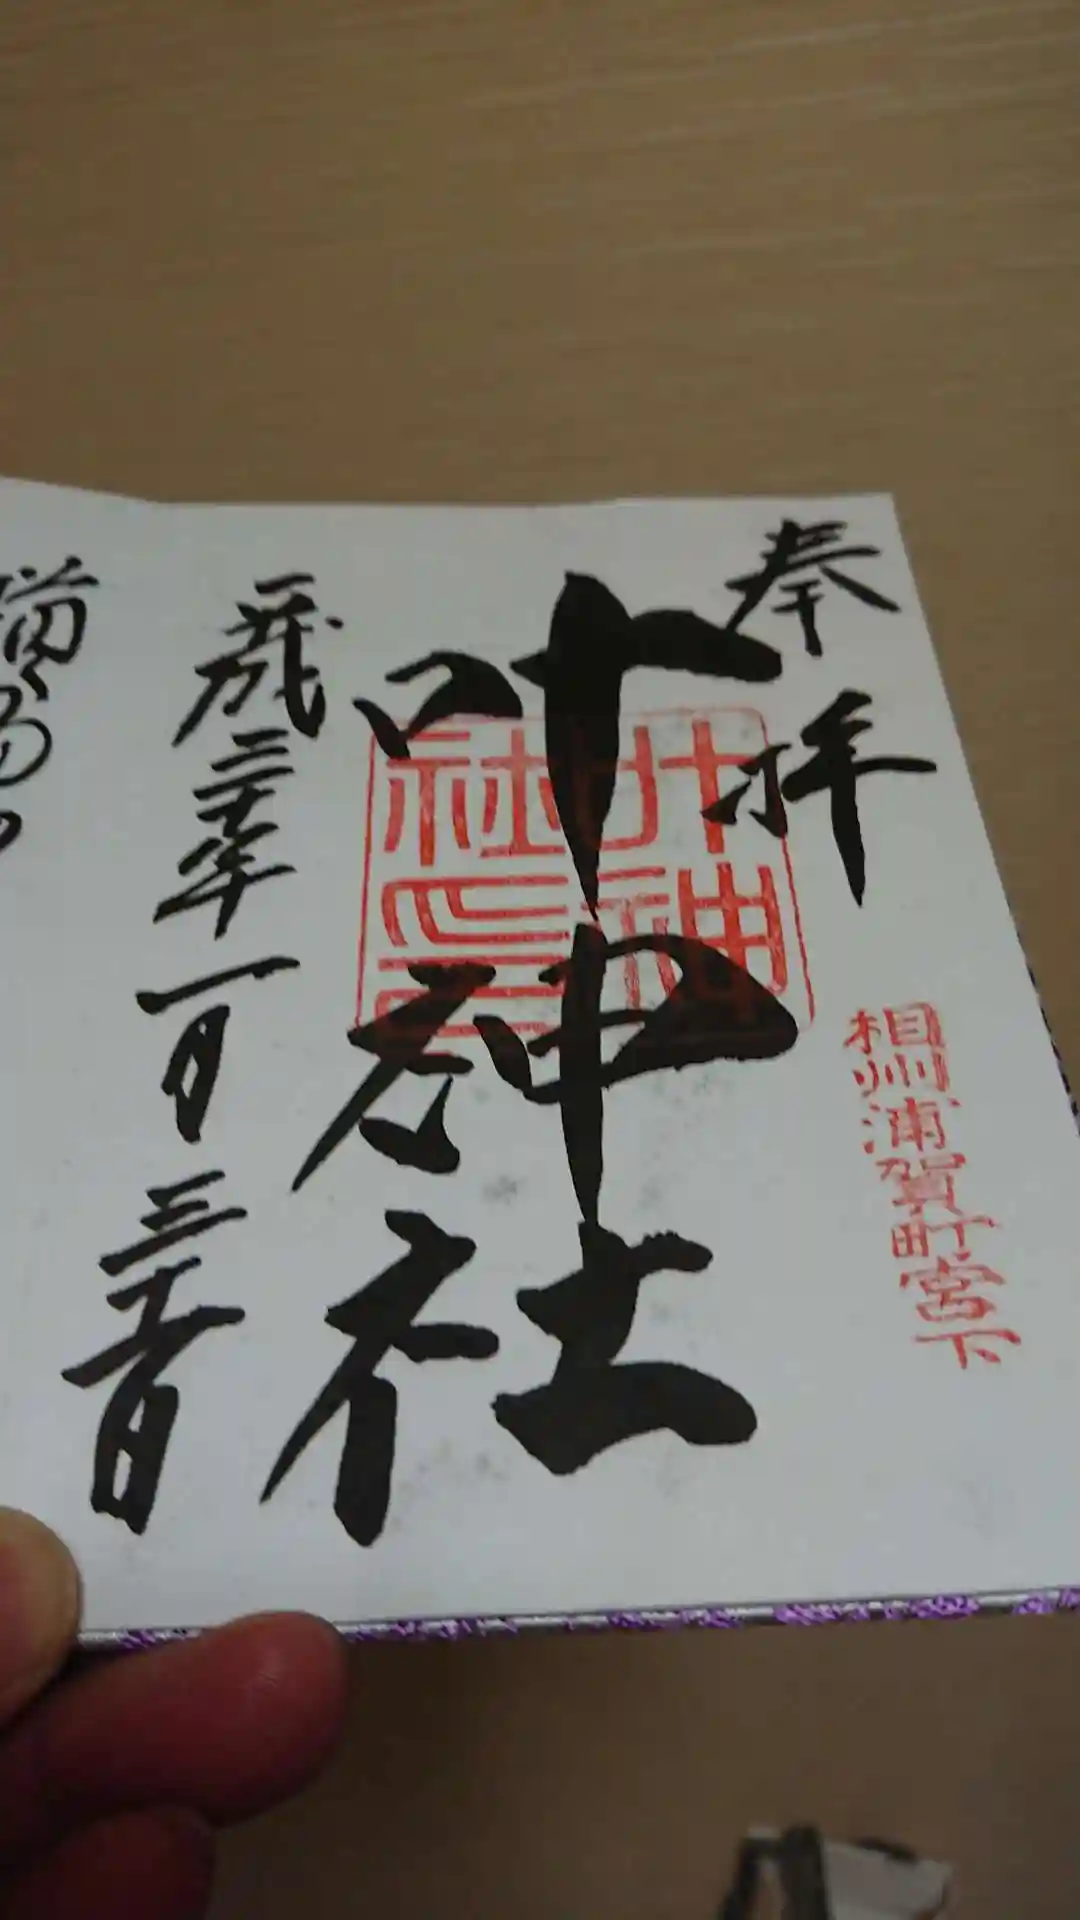 奉拝
相州浦賀町宮下
叶神社
叶神社印
平成三十年一月三十日